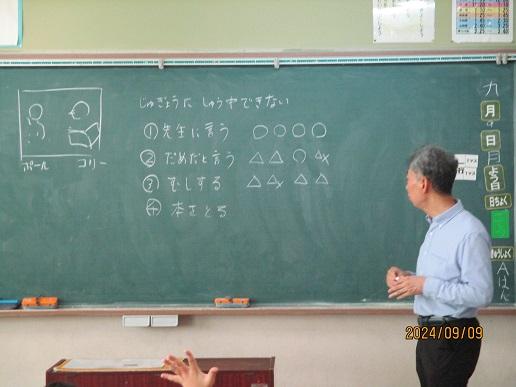 じゅぎょうに しゅう中できない
①先生に言う ○ ○ ○ ○
②だめだと言う △ △ ○ △×
③むしする △ △× △ △
④本をとる
ポール コリー
九
月
9
日
月
よう日
日ちょく
きゅうしょく
Aはん
2024/09/09